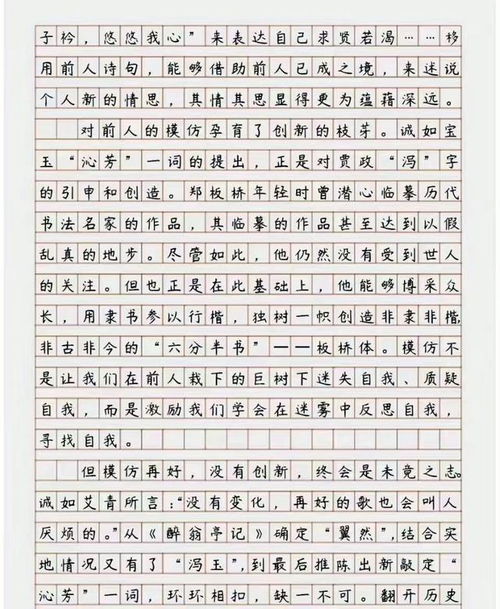 子衿，悠悠我心”来表达自己求贤若渴……移
用前人诗句，能够借助前人已成之境，来述说
个人新的情思，其情其思显得更为蕴藉深远。
对前人的模仿孕育了创新的枝芽。诚如宝
玉“沁芳”一词的提出，正是对贾政“泻”字
的引申和创造。郑板桥年轻时曾潜心临摹历代
书法名家的作品，其临摹的作品甚至达到以假
乱真的地步。尽管如此，他仍然没有受到世人
的关注。但也正是在此基础上，他能够博采众
长，用隶书参以行楷，独树一帜创造非隶非楷，
非古非今的“六分半书”——板桥体。模仿不
是让我们在前人栽下的巨树下迷失自我、质疑
自我，而是激励我们学会在迷雾中反思自我，
寻找自我。
但模仿再好，没有创新，终会是未竟之志。
诚如艾青所言：“没有变化，再好的歌也会叫人
厌烦的。”从《醉翁亭记》确定“翼然”，结合实
地情况又有了“泻玉”，到最后推陈出新敲定“
沁芳”一词，环环相扣，缺一不可。翻开历史